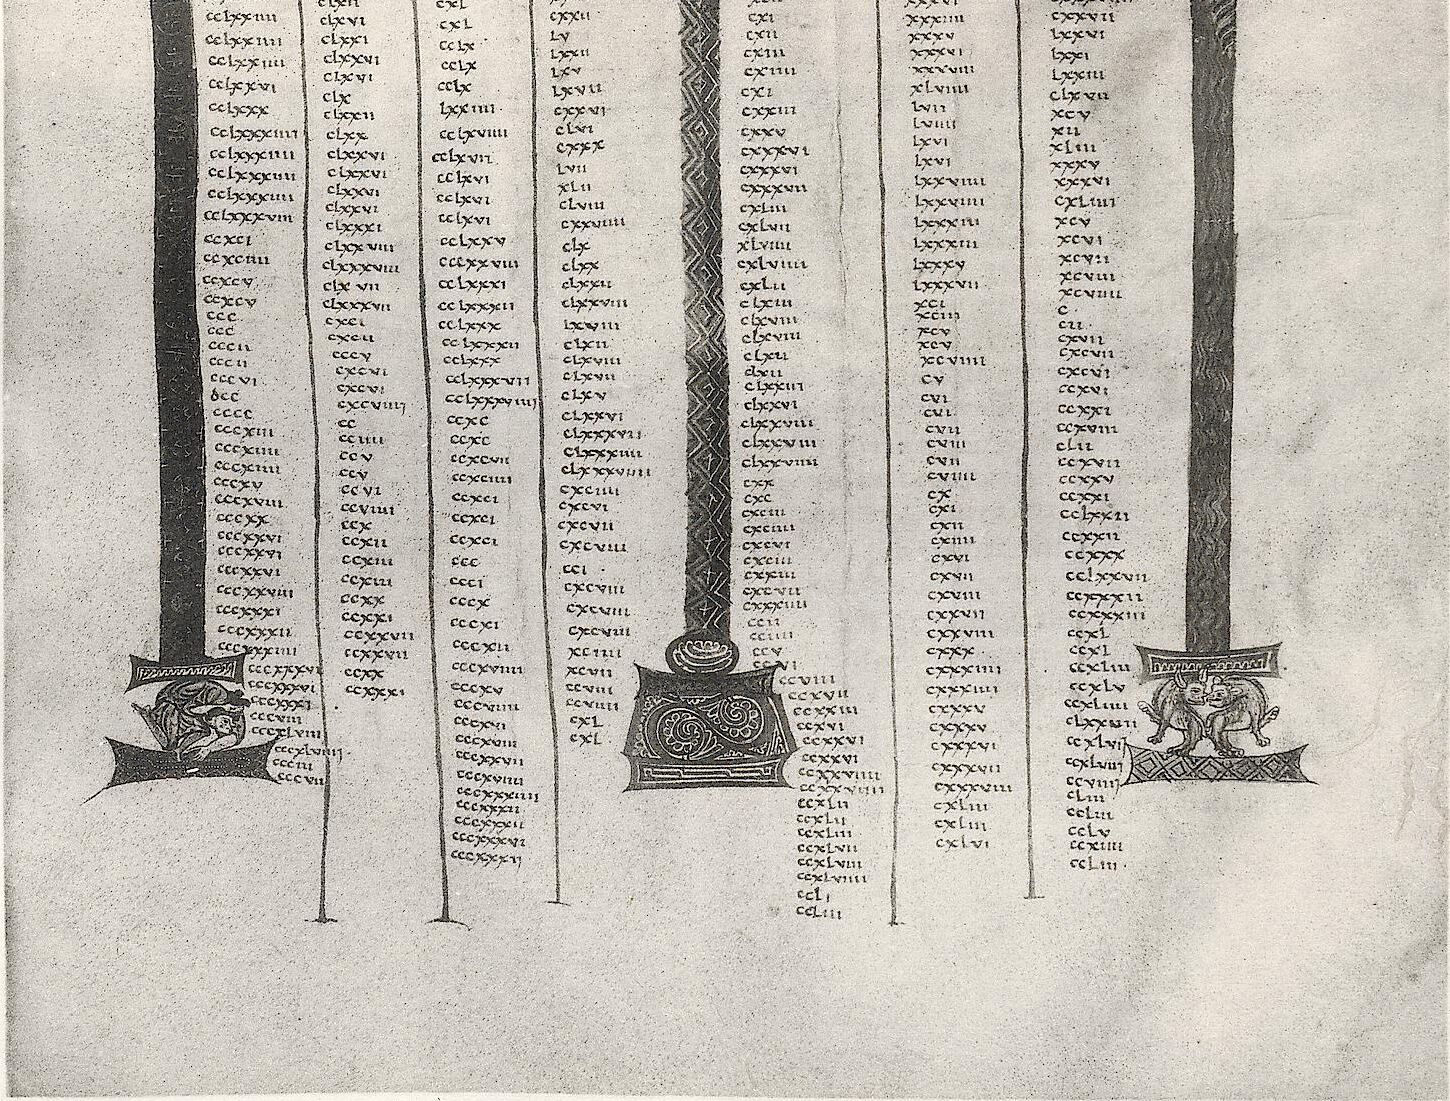 cclxxiiii
cclxxiiii
cclxxiiii
cclxxvi
cclxxx
cclxxxiiii
cclxxxiiii
cclxxxiiii
cclxxxiiii
cclxxxviii
ccxci
ccxciiii
ccxcv
ccxcv
ccc
ccc
cccii
cccii
cccvi
cccc
cccxiii
cccxiiii
cccxiiii
cccxv
cccxviii
cccxx
cccxxvi
cccxxvi
cccxxvi
cccxxviii
cccxxxi
cccxxxii
cccxxxiiii
cccxxxvi
cccxxxvi
cccxxxi
cccviii
cccxlviii
cccxlviiii
ccciii
cccvii
clxvi
clxxi
clxxvi
clxvi
clx
clxxii
clxx
clxxvi
clxxvi
clxxvi
clxxvi
clxxxi
clxxviii
clxxxviii
clxvii
clxxxvii
cxci
cxcii
cccv
cxcvi
cxcvi
cxcviiii
cc
cciiii
ccv
ccv
ccvi
ccviiii
ccx
ccxii
ccxiii
ccxiii
ccxx
ccxxi
ccxxvii
ccxxvii
ccxx
ccxxxi
cxl
cxl
cclx
cclx
cclx
lxxiiii
cclxviiii
cclxvii
cclxvi
cclxvi
cclxvi
cclxxv
cccxxviii
cclxxxi
cclxxxii
cclxxx
cclxxxii
cclxxx
cclxxxvii
cclxxxviiii
ccxc
ccxc
ccxcvii
ccxciiii
ccxci
ccxci
ccxci
ccc
ccci
cccx
cccxi
cccxii
cccxviiii
cccxv
cccviiii
cccxvi
cccxviii
cccxxvii
cccxviiii
cccxxxiiii
cccxxxii
cccxxxii
cccxxxvi
cccxxxvi
cxxii
lv
lxxii
lxv
lxvii
cxxvi
clvi
cxxx
lvii
xlii
clviii
cxxviiii
clx
clxx
clxxii
clxxviii
lxviii
clxii
clxviii
clxvii
clxv
clxxvi
clxxxvii
clxxxiiii
clxxxviiii
cxciiii
cxcvi
cxcvii
cxcviii
cci
cxcviii
cxcviii
cxcviii
xciiii
xcvii
ccviii
ccviiii
cxl
cxl
cxi
cxii
cxiii
cxiiii
cxi
cxxiii
cxxv
cxxxvi
cxxxvi
cxxxvii
cxliii
cxlvii
xlviiii
cxlviiii
cxlii
clxiii
clxviii
clxvii
clxii
clxxiii
clxxvi
clxxviii
clxxviii
clxxviiii
cxx
cxc
cxciii
cxciiii
cxcvi
cxciii
cxxiii
cxcvii
cxxxiiii
ccii
cciiii
ccv
ccvi
ccviii
ccxvii
ccxxiii
ccxvi
ccxxvi
ccxxvi
ccxxviiii
ccxxviiii
ccxlii
ccxliii
ccxlvii
ccxlviii
ccxlviiii
ccli
ccliii
xxxiiii
xxxv
xxxvi
xxxviii
xlviiii
lvii
lviiii
lxvi
lxvi
lxxviiii
lxxviiii
lxxxiii
lxxxiii
lxxxv
lxxxvii
xci
xciii
xcv
xcv
xcviiii
cv
cvi
cvi
cvii
cviii
cvii
cviiii
cx
cxi
cxii
cxiiii
cxvi
cxvii
cxviii
cxxvii
cxxviii
cxxx
cxxxiiii
cxxxiiii
cxxxv
cxxxv
cxxxvi
cxxxvii
cxxxviii
cxliii
cxliii
cxlvi
cxxvii
lxxvi
lxxi
lxxiii
clxvii
xcv
xii
xliii
xxxv
xxxvi
cxliiii
xcv
xcvi
xcvii
xcviii
xcviiii
c
cii
cxvii
cxcvii
cxcvi
ccxvi
ccxxi
ccxviii
clii
ccxvii
ccxxv
ccxxi
cclxxii
ccxxii
ccxxx
cclxxvii
ccxxxii
ccxxxiiii
ccxl
ccxl
ccxliii
ccxlv
ccxliiii
clxxvii
ccxlvii
ccxlviiii
ccviiii
cliii
ccliii
cclv
ccxiiii
ccliii